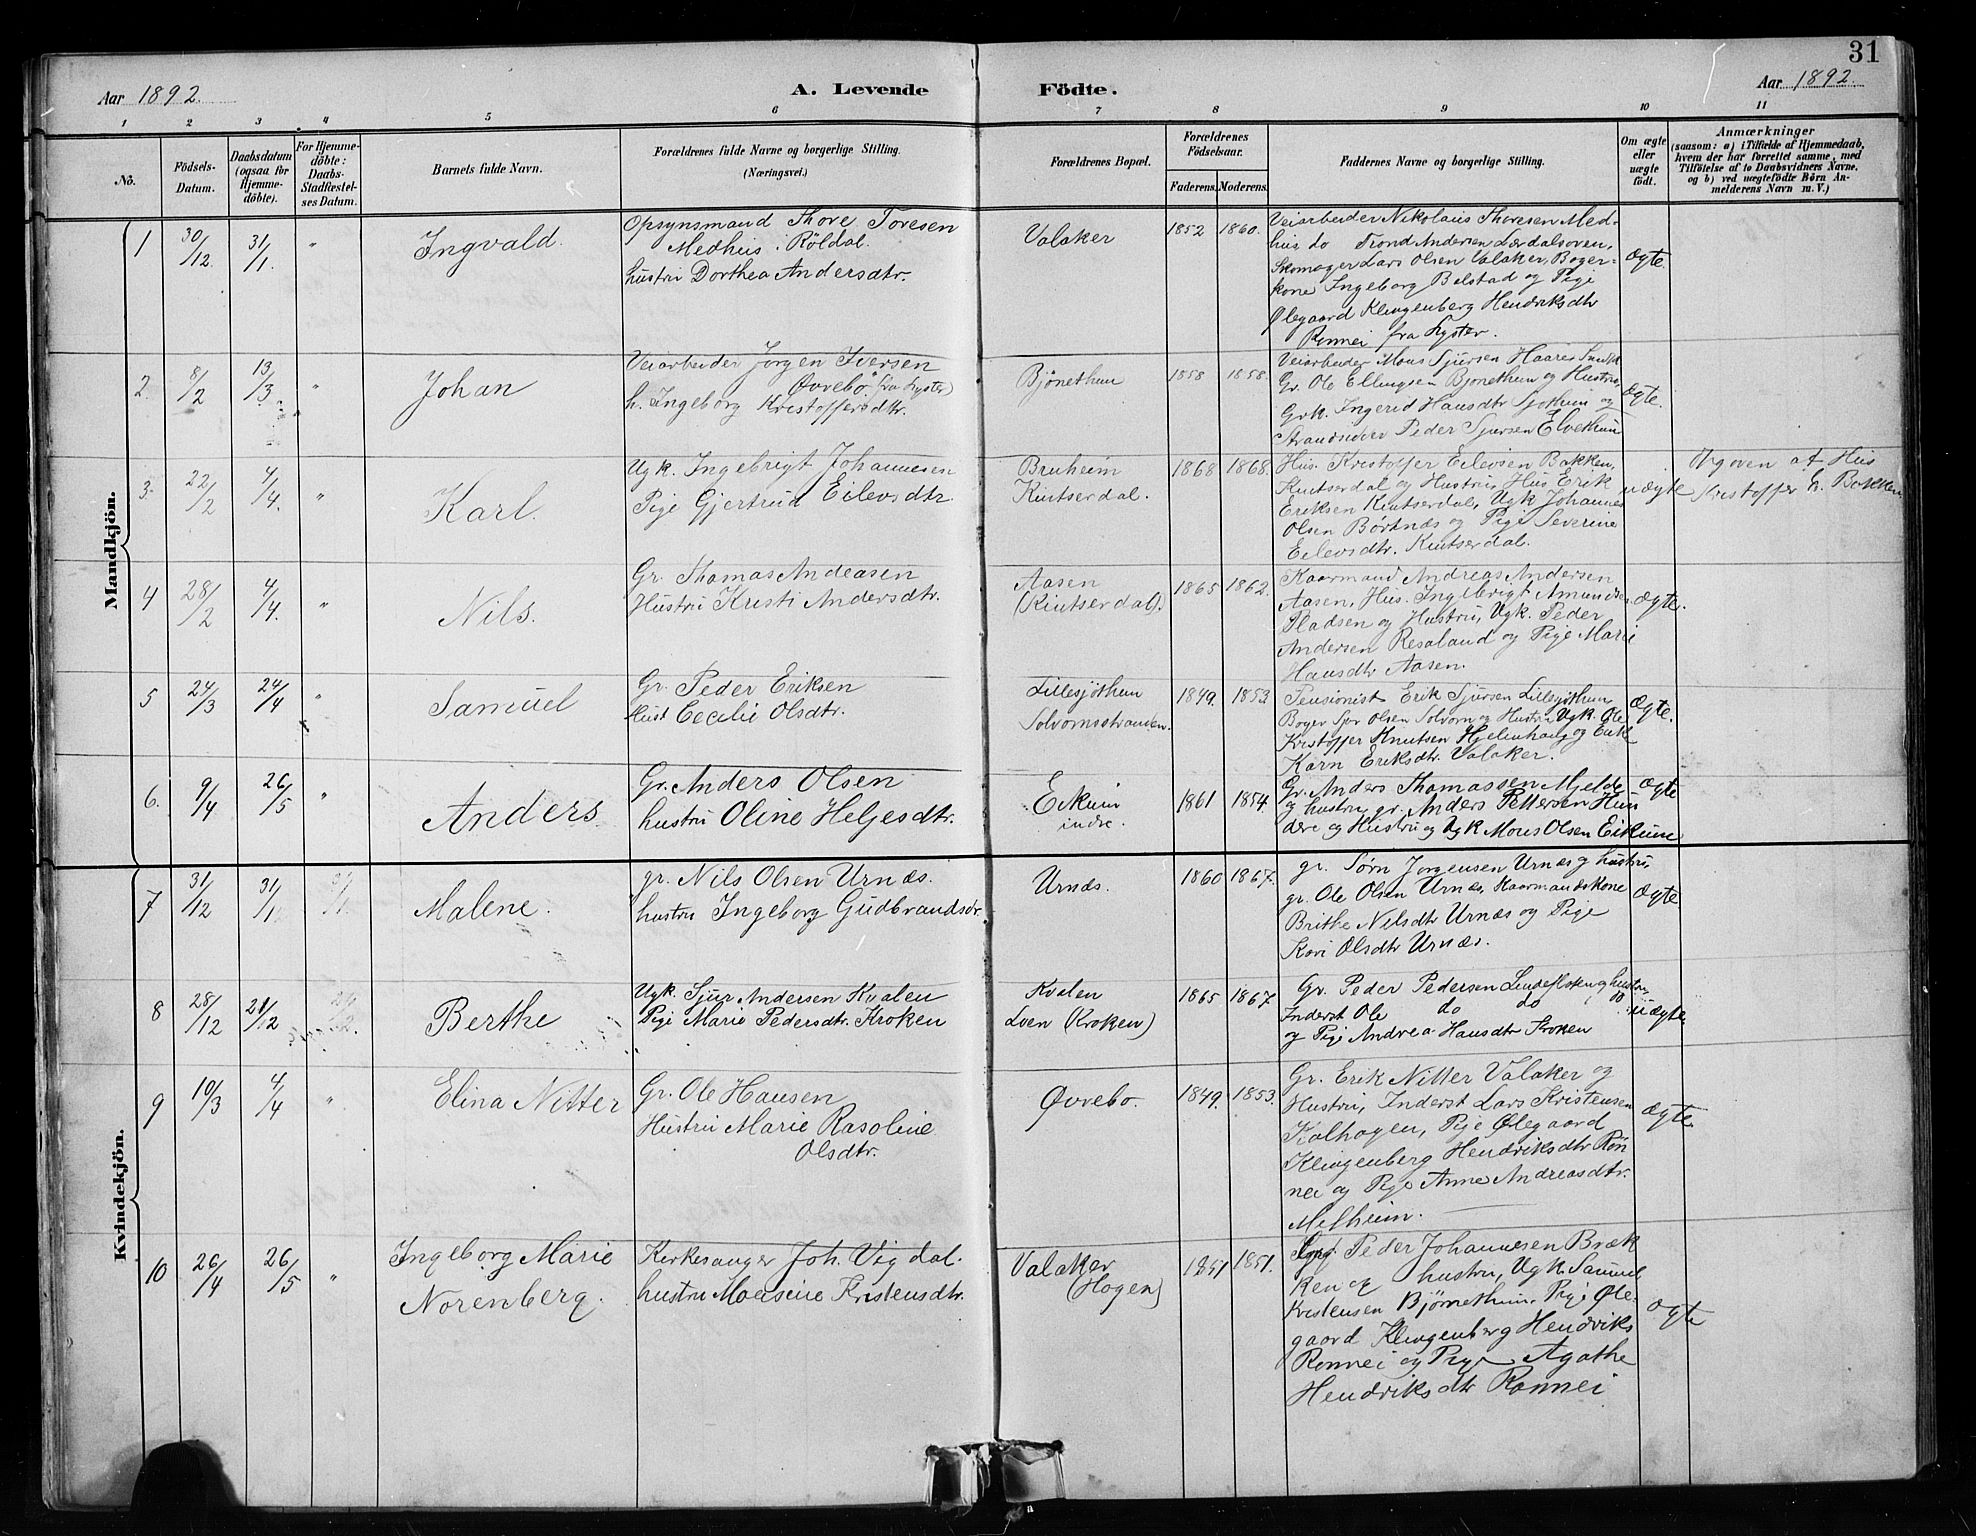 31
Aar 1892.
A. Levende
Födte.
Aar 1892.
1 2 3 4 5 6 7 8 9 10 11
No.
Födsels-
Datum.
Daabsdatum
(ogsaa for
Hjemme-
döbte).
For Hjemme-
döbte:
Daabs-
Stadfæstel-
ses Datum.
Barnets fulde Navn.
Forældrenes fulde Navne og borgerlige Stilling.
(Næringsvei.)
Forældrenes Bopæl.
Forældrenes
Födselsaar.
Faderens. Moderens.
Faddernes Navne og borgerlige Stilling.
Om ægte
eller
uægte
födt.
Anmærkninger
(saasom: a) i Tilfælde af Hjemmedaab,
hvem der har forrettet samme, med
Tilföielse af to Daabsvidners Navne,
og b) ved uægtefödte Börn An-
melderens Navn m. V.)
Mandkjön.
1
30/12.
31/1.
"
Ingvald.
Opsynsmand Thore Toresen
Medhus i Röldal.
hustru Dorthea Andersdtr.
Valaker
1852 1860.
Veiarbeider Nikolaus Thoresen Med-
hus do Trond Andersen Lærdalsoren,
Skomager Lars Olsen Valaker, Bøger-
kone Ingeborg Bolstad og Pige
Ølegaard Klingenberg Hendriksdtr
Ronnei fra Lyster.
ægte.
2.
8/2
13/3.
"
Johan
Veiarbeider Jörgen Iversen
Øvrebö (fra Lyster)
h. Ingeborg Kristoffersdtr.
Bjönethun
1858 1858.
Veiarbeider Mons Sjursen Haare
Gr. Ole Ellingsen Bjonethun og Hustru,
Grk. Ingerid Hansdtr Sjöthun og
Strandsidder Peder Sjursen Elvethun
ægte.
3.
22/2
4/4.
"
Karl.
Ugk. Ingebrigt Johannesen
Pige Gjertrud Eilevsdtr.
Bruheim
Kintserdal.
1868 1868.
Hus. Kristoffer Eilevsen Bakken,
Kintserdal og Hustru, Hus Erik
Eriksen Kintserdal, Ugk Johannes
Olsen Börtnæs og Pige Severine
Eilevsdtr. Kintserdal.
uægte
Opgiven af Hus
Kristoffer E. Bakken
4
28/2
4/4.
"
Nils.
Gr. Thomas Andeasen
Hustru Kristi Andersdtr.
Aasen
(Kintserdal).
1865 1862.
Kaarmand Andreas Andersen
Aasen, Hus. Ingebrigt Amundsen
Pladsen og Hustru, Ugk. Peder
Andersen Resaland og Pige Marie
Hansdtr Aasen.
ægte.
5
24/3
24/4
"
Samuel
Gr. Peder Eriksen
Hust Cecilie Olsdtr.
Lillesjöthun
Solvornsstranden.
1849. 1853
Pensionist Erik Sjursen Lillesjöthun
Bøger Sjur Olsen Solvorn og Hustru Ugk. Ole
Kristoffer Knutsen Hjelmhaug og Enk
Karn Eriksdtr. Valaker.
Ægte.
6.
9/4
26/5
"
Anders.
Gr. Anders Olsen
hustru Oline Heljesdtr.
Eikum
indre.
1861 1854.
Gr. Anders Thomassen Mjelde
og hustru, gr. Anders Pettersen Hun
dere og Hustru og Ugk Mons Olsen Eikum
ægte
Kvindekjön.
7
31/12
31/1
31/1.
Malene.
gr. Nils Olsen Urnæs.
hustru Ingeborg Gudbrandsdr.
Urnæs.
1860 1867.
gr. Sørn Jorgensen Urnæs og hustru,
gr. Ole Olsen Urnæs, Kaarmandskone
Brithe Nilsdtr Urnæs og Pige
Kari Olsdtr Urnæs.
Ægte
8
28/12
21/2
Berthe
Ugk. Sjur Andersen Kvalen
Pige Marie Pedersdtr. Kroken
Kvalen
Loen (Kroken)
1865 1867.
Gr. Peder Pedersen Lindeflaten og hustru,
Inderst Ole do do do
og Pige Andrea Hansdtr Kroken
uægte
9
10/3
4/4
"
Elina Nitter
Gr. Ole Hansen
Hustru Marie Rasoline
Olsdtr.
Øvrebo.
1849. 1853.
Gr. Erik Nitter Valaker og
Hustru, Inderst Lars Kristensen
Kalhagen, Pige Ølegaard
Klingenberg Hendriksdtr Rön-
nei og Pige Anne Andreasdtr.
Melheim.
ægte.
10
26/4
26/5
"
Ingeborg Marie
Norenberg.
Kirkesanger Joh. Vigdal.
hustru Monsine Kristensdtr.
Valaker
(Hogen)
1851 1851.
Peder Johannesen Bræk
ken og hustru, Ugk. Samuel
Kristensen Bjørnethun, Pige Øle-
gaard Klingenberg Hendriks
Ronnei og Pige Agathe
Hendriksdtr Ronnei
ægte